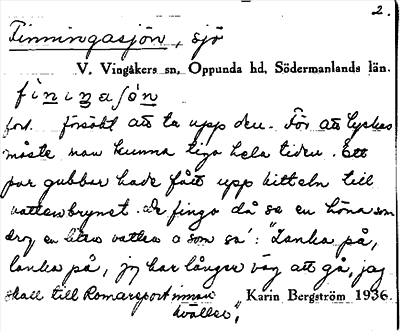 2.
Tinningasjön, sjö
V. Vingåkers sn, Oppunda hd, Södermanlands län.
fort. försökt att ta upp den. För att lyckas
måste man kunna tiga hela tiden. Ett
par gubbar hade fått upp kitteln till
vattenbrynet. De fingo då se en höna som
drog en liten vatten o som sa': "Lanka på,
lanka på, jag har långer väg att gå, jag
skall till Romareport innan
kvällen",
Karin Bergström 1936.